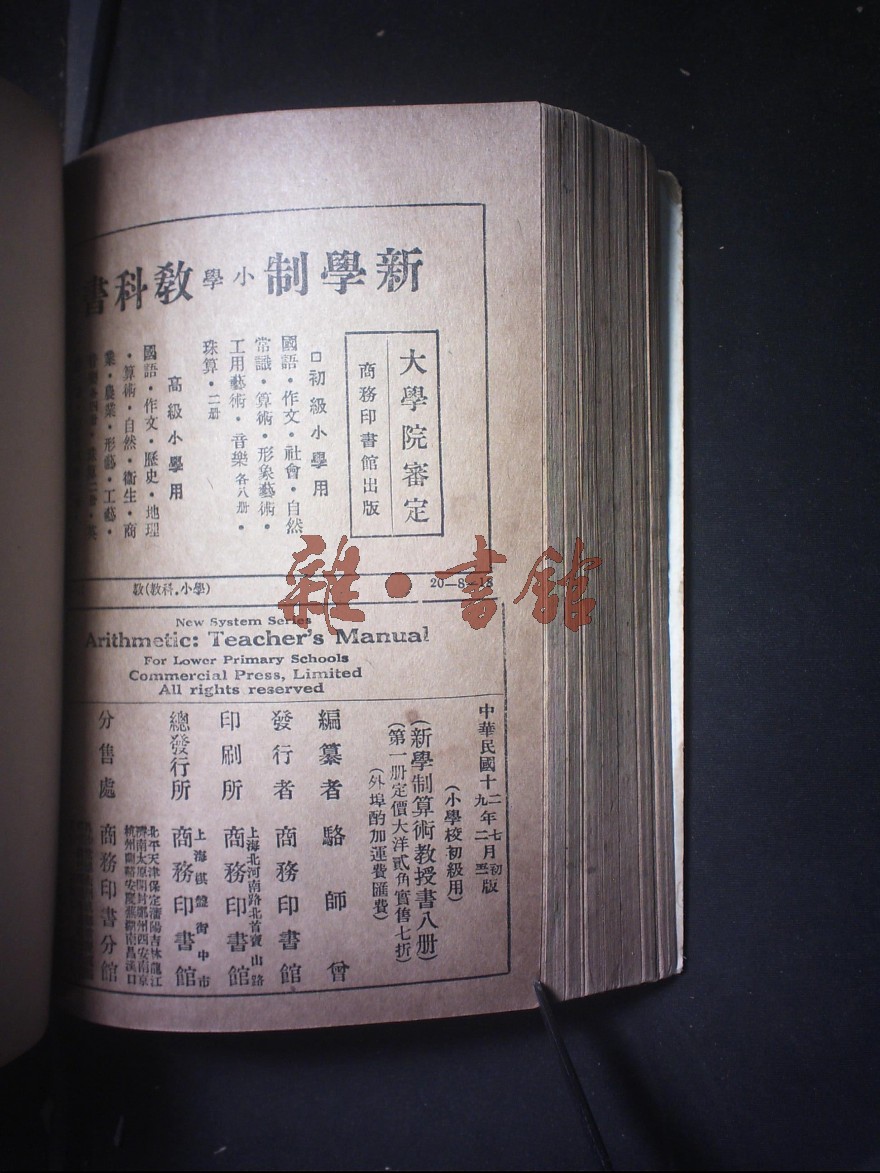 新學制小學教科書
大學院審定
商務印書館出版
□初級小學用
國語·作文·社會·自然
常識·算術·形象藝術·
工用藝術·音樂各八册·
珠算·二册
高級小學用
國語·作文·歷史·地理
·算術·自然·衞生·商
業·農業·形藝·工藝·
教(教科.小學)
20—8—18
New System Series
Arithmetic: Teacher's Manual
For Lower Primary Schools
Commercial Press, Limited
All rights reserved
中華民國十二年七月初版
九年二月
(小學校初級用)
(新學制算術教授書八册)
(第一册定價大洋貳角實售七折)
(外埠酌加運費匯費)
編纂者 駱師曾
發行者 商務印書館
上海北河南路北首寶山路
印刷所 商務印書館
上海棋盤街中市
總發行所 商務印書館
北平天津保定瀋陽吉林龍江
濟南太原開封鄭州西安南京
杭州蘭谿安慶蕪湖南昌漢口
分售處 商務印書分館
雜·書館